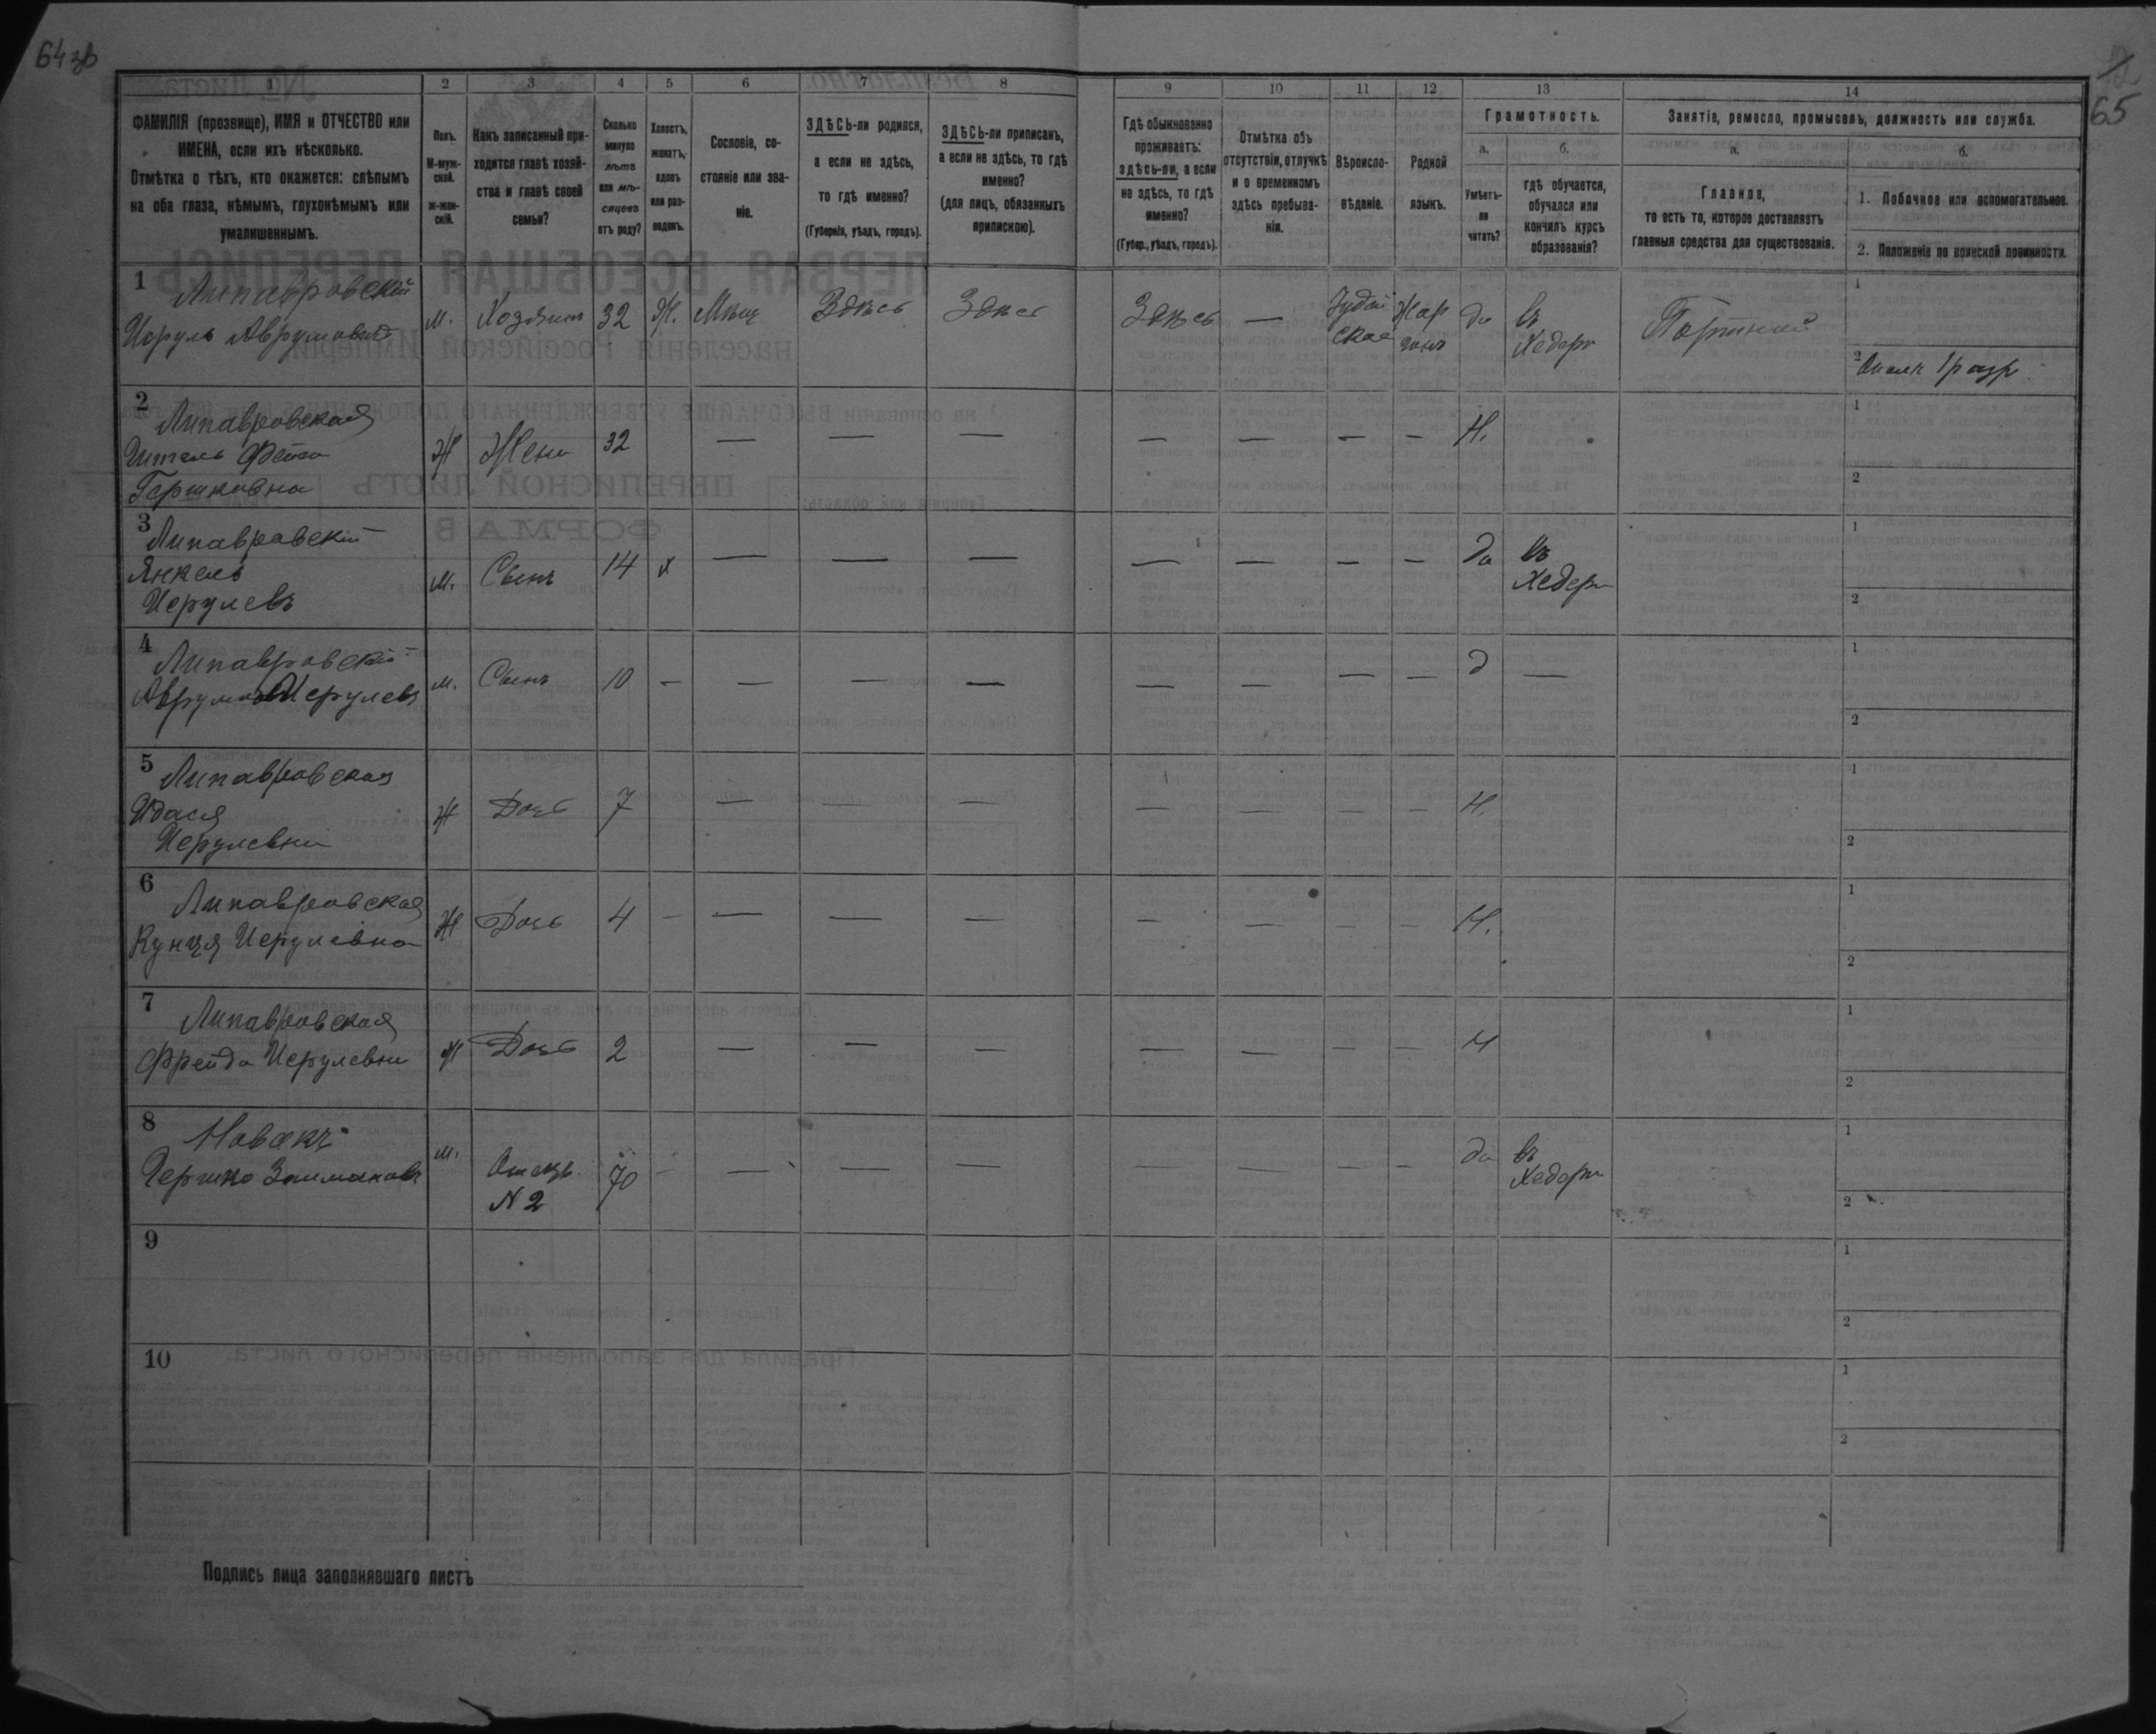 64 об
65
1 2 3 4 5 6 7 8 9 10 11 12 13 14
ФАМИЛІЯ (прозвище), ИМЯ и ОТЧЕСТВО или
ИМЕНА, если ихъ нѣсколько.
Отмѣтка о тѣхъ, кто окажется: слѣпымъ
на оба глаза, нѣмымъ, глухонѣмымъ или
умалишеннымъ.
Полъ.
М-муж-
ской.
Ж-жен-
скій.
Какъ записанный при-
ходится главѣ хозяй-
ства и главѣ своей
семьи?
Сколько
минуло
лѣтъ
или мѣ-
сяцевъ
отъ роду?
Холостъ,
женатъ,
вдовъ
или раз-
веденъ.
Сословіе, со-
стояніе или зва-
ніе.
ЗДѢСЬ-ли родился,
а если не здѣсь,
то гдѣ именно?
(Губернія, уѣздъ, городъ).
ЗДѢСЬ-ли приписанъ,
а если не здѣсь, то гдѣ
именно?
(для лицъ, обязанныхъ
припискою).
Гдѣ обыкновенно
проживаетъ:
здѣсь-ли, а если
не здѣсь, то гдѣ
именно?
(Губер., уѣздъ, городъ).
Отмѣтка объ
отсутствіи, отлучкѣ
и о временномъ
здѣсь пребыва-
ніи.
Вѣроиспо-
вѣданіе.
Родной
языкъ.
Грамотность.
а.
Умѣетъ-
ли
читать?
б.
гдѣ обучается,
обучался или
кончилъ курсъ
образованія?
Занятіе, ремесло, промыселъ, должность или служба.
а.
Главное,
то есть то, которое доставляетъ
главныя средства для существованія.
б.
1. Побочное или вспомогательное.
2. Положеніе по воинской повинности.
1 Липавровскій
Исруль Аврумовъ
м. Хозяинъ 32 Ж. Мѣщ Здѣсь Здѣсь Здѣсь — Іудей
ское Жар
гонъ да въ
Хедерѣ Портной
1
2 Ополч 1 разр
2 Липавровская
Фейга
Гершковна
Ж Жена 32 — — — — — — — Н.
1
2
3 Липавровскій
Янкель
Исрулевъ
м. Сынъ 14 х — — — — — — — да въ
Хедерѣ
1
2
4 Липавровскій
Аврумъ Исрулевъ
м. Сынъ 10 — — — — — — — — д —
1
2
5 Липавровская
Идася
Исрулевна
Ж Дочь 7 — — — — — — — Н.
1
2
6 Липавровская
Кунця Исрулевна
Ж Дочь 4 — — — — — — — — Н.
1
2
7 Липавровская
Фрейда Исрулевна
Ж Дочь 2 — — — — — — — Н
1
2
8 Новакъ
Гершко Залмановъ
м. Отецъ
N 2 70 — — — — — — — — да въ
Хедерѣ
1
2
9
1
2
10
1
2
Подпись лица заполнявшаго листъ